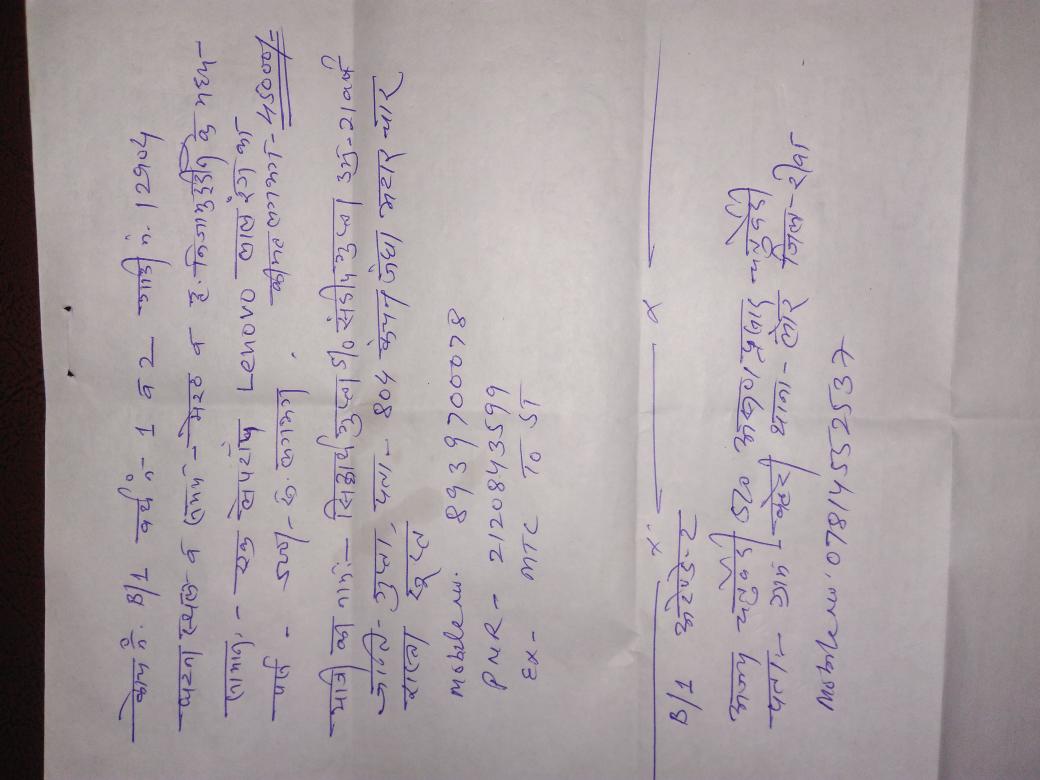 कोच नं. B/1 बर्थ नं- 1 व 2 गाड़ी नं. 12904
घटना स्थल व समय - मेरठ व ह. निजामुद्दीन के मध्य-
सामान - एक लैपटॉप Lenovo लाल रंग का
कीमत लगभग - 45000/-
पर्स - 500/- रू. लगभग
यात्री का नाम:- सिद्धार्थ गुप्ता S/o संदीप गुप्ता उम्र-21 वर्ष
जाति- गुप्ता, पता - 804 कंचन जंघा सदार
वाला
Mobile no. 8939700078
PNR - 2120843599
Ex- MTC TO ST
B/1 अटेण्डेन्ट
अजय चतुर्वेदी S/o प्रसाद चतुर्वेदी
पता:- ग्राम - थाना - जिला - रीवा
Mobile no. 07814552537